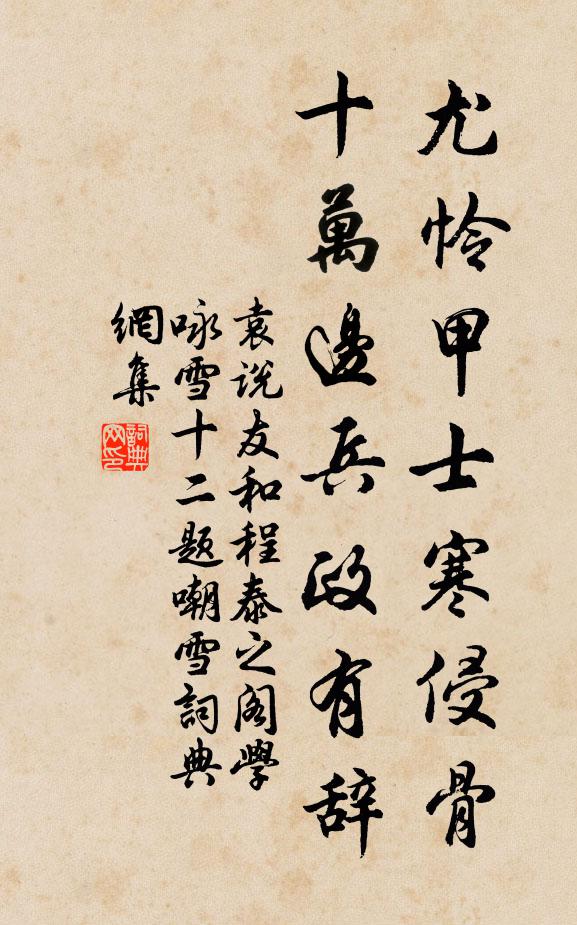 尤怜甲士寒侵骨
十萬邊兵政有辞
袁说友和程泰之阁學
咏雪十二题嘲雪詞典
網集
詞典
网印